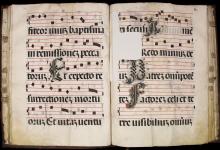 fiteor unum baptisma
in remissionem pecca
torum Et expecto re
surrectionem mortu
orum Et vitam ventu
ri seculi
Patrem omnipote
Factorem celi et ter
re visibilium omni